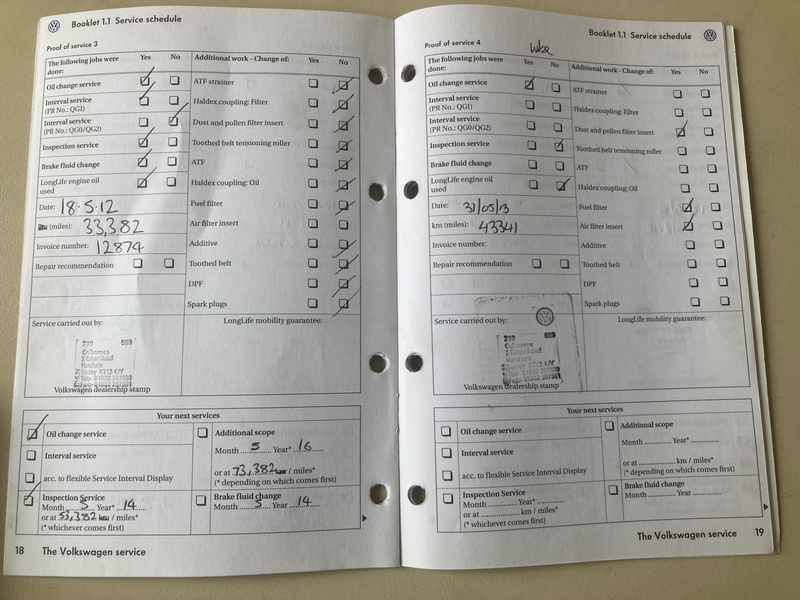 Booklet 1.1 Service schedule
Proof of service 3
The following jobs were done: Yes No
Oil change service
Interval service
(PR No.: QG1)
Interval service
(PR No.: QG0/QG2)
Inspection service
Brake fluid change
LongLife engine oil
used
Date: 18.5.12
(miles): 33,382
Invoice number: 12874
Repair recommendation
Additional work - Change of: Yes No
ATF strainer
Haldex coupling: Filter
Dust and pollen filter insert
Toothed belt tensioning roller
ATF
Haldex coupling: Oil
Fuel filter
Air filter insert
Additive
Toothed belt
DPF
Spark plugs
Service carried out by:
LongLife mobility guarantee:
210
Esher Road
Hersham
Surrey KT12 4JY
Volkswagen dealership stamp
Your next services
Oil change service
Interval service
acc. to flexible Service Interval Display
Inspection Service
Month 5 Year* 14
or at 53,382 km / miles*
(* whichever comes first)
Additional scope
Month 5 Year* 16
or at 73,382 km / miles*
(* depending on which comes first)
Brake fluid change
Month 5 Year 14
18 The Volkswagen service
Booklet 1.1 Service schedule
Proof of service 4
The following jobs were
done: Yes No
Oil change service
Interval service
(PR No.: QG1)
Interval service
(PR No.: QG0/QG2)
Inspection service
Brake fluid change
LongLife engine oil
used
Date: 31/05/13
km (miles): 43341
Invoice number:
Repair recommendation
Additional work - Change of: Yes No
ATF strainer
Haldex coupling: Filter
Dust and pollen filter insert
Toothed belt tensioning roller
ATF
Haldex coupling: Oil
Fuel filter
Air filter insert
Additive
Toothed belt
DPF
Spark plugs
Service carried out by:
LongLife mobility guarantee:
210
Esher Road
Hersham
Surrey KT12 4JY
Volkswagen dealership stamp
Your next services
Oil change service
Interval service
acc. to flexible Service Interval Display
Inspection Service
Month Year*
or at km / miles*
(* whichever comes first)
Additional scope
Month Year*
or at km / miles*
(* depending on which comes first)
Brake fluid change
Month Year
The Volkswagen service 19